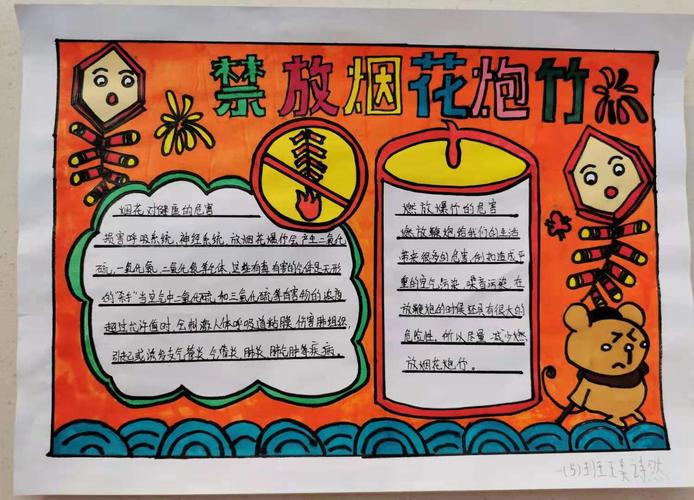 禁放烟花炮竹
烟花对健康的危害
损害呼吸系统、神经系统,放烟花爆竹会产生二氧化
硫,一氧化氮,二氧化氮等气体,这些有毒有害的气体是无形
的"杀手"当空气中二氧化硫和三氧化硫等有害物的浓度
超过允许值时,会刺激人体呼吸道粘膜,伤害肺组织,
引起或诱发支气管炎、气管炎、肺炎、肺气肿等疾病。
燃放爆竹的危害
燃放鞭炮给我们的生活
带来很多的危害,例如造成严
重的空气污染,噪音污染,在
放鞭炮的时候还具有很大的
危险性,所以尽量减少燃
放烟花炮竹。
一(5)班
诗然